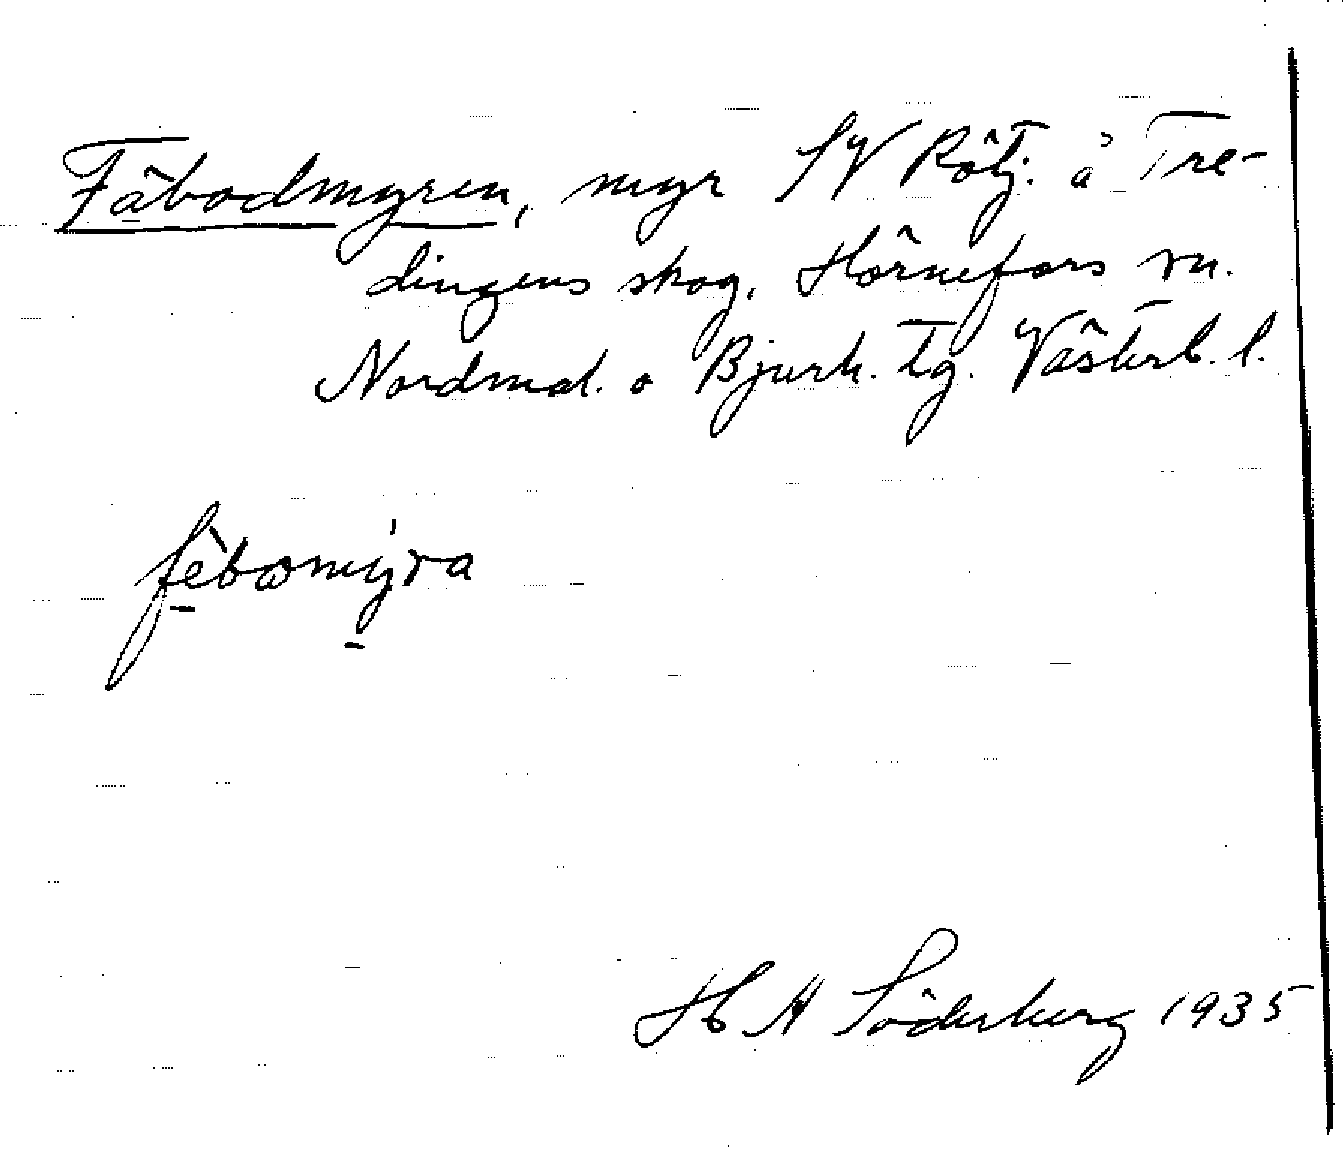 Fäbodmyren, myr SV Rötj. å Tre-
dingens skog, Hörnefors sn.
Nordmal. o Bjurh. tg. Västerb. l.
fèbωmýra
H A Söderberg 1935